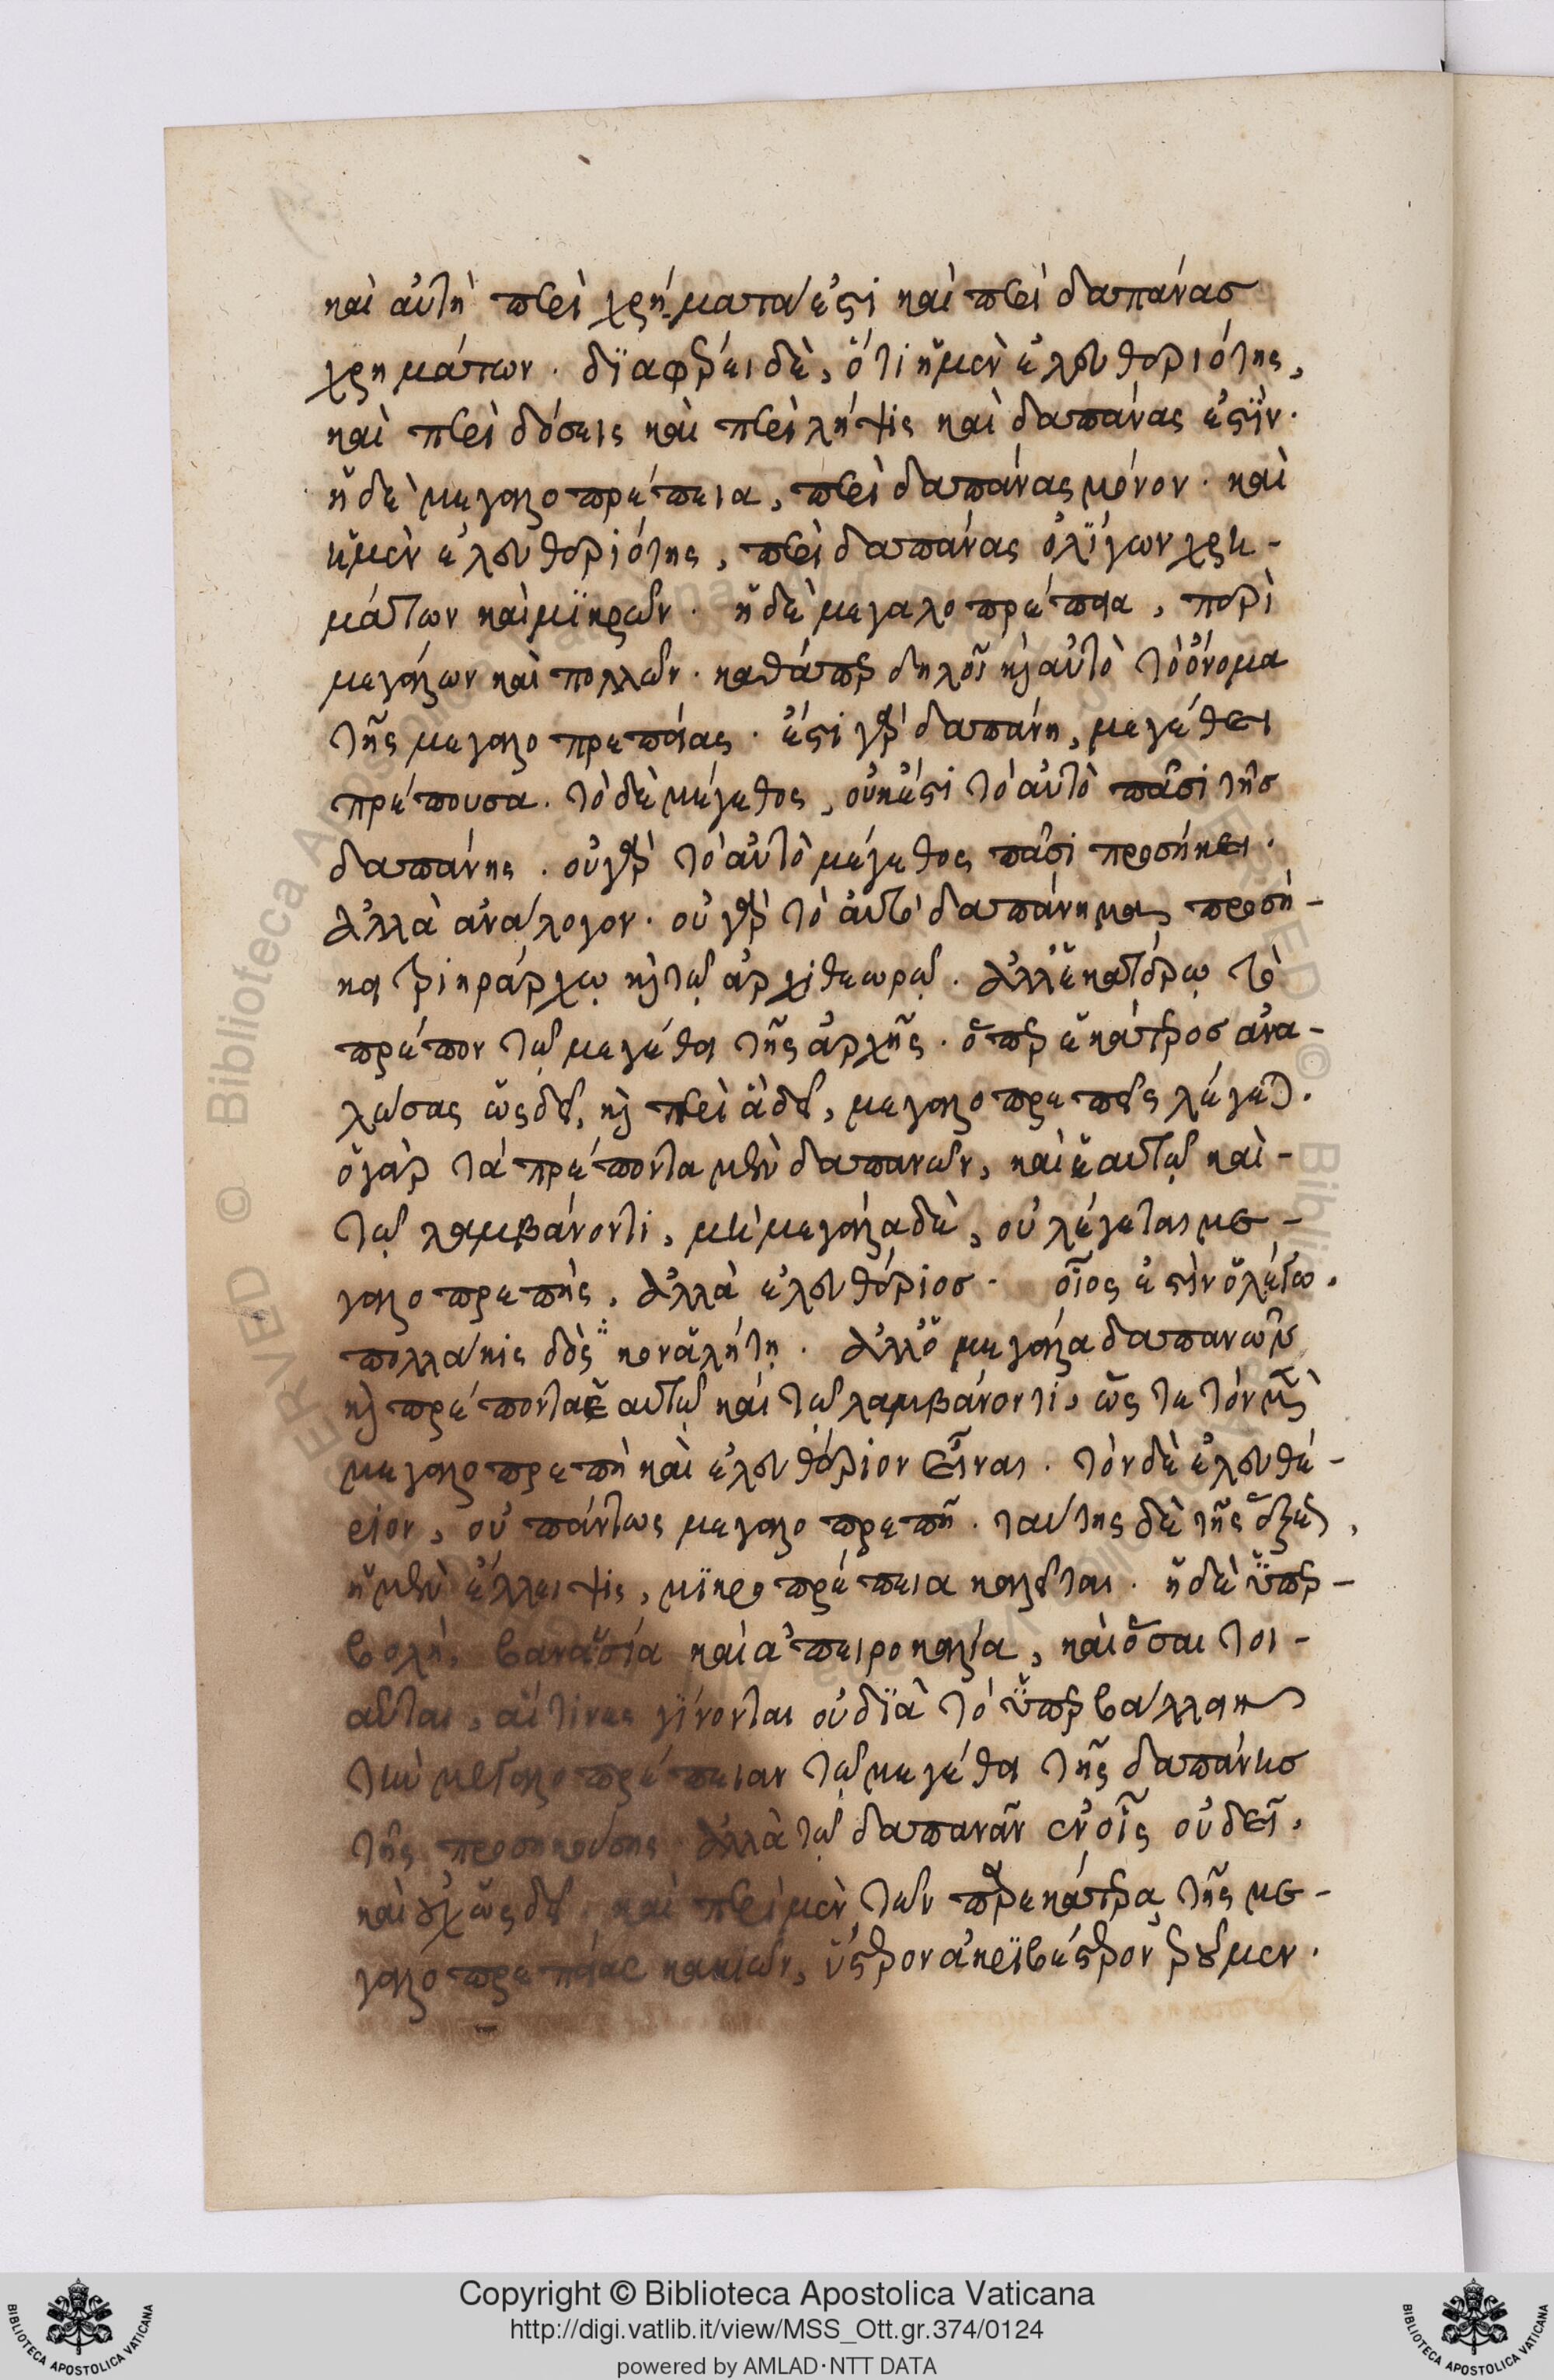 καὶ αὐτὴ περὶ χρήματα ἐστὶ καὶ περὶ δαπάνας
χρημάτων. διαφέρει δὲ, ὅτι ἡ μὲν ἐλευθεριότης,
καὶ περὶ δόσεις καὶ περὶ λήψις καὶ δαπάνας ἐστὶν.
ἡ δὲ μεγαλοπρέπεια, περὶ δαπάνας μόνον. καὶ
ἡ μὲν ἐλευθεριότης, περὶ δαπάνας ὀλίγων χρη-
μάτων καὶ μικρῶν. ἡ δὲ μεγαλοπρέπεια, περὶ
μεγάλων καὶ πολλῶν. καθάπερ δηλοῖ καὶ αὐτὸ τὸ ὄνομα
τῆς μεγαλοπρεπείας. ἔστι γὰρ δαπάνη, μεγέθει
πρέπουσα. τὸ δὲ μέγεθος, οὐκ ἔστι τὸ αὐτὸ πᾶσι τῆς
δαπάνης. οὐ γὰρ τὸ αὐτὸ μέγεθος πᾶσι προσήκει.
ἀλλὰ ἀνάλογον. οὐ γὰρ τὸ αὐτὸ δαπάνημα προσή-
κει τριηράρχῳ καὶ τῷ ἀρχιθεωρῷ. ἀλλ' ἑκατέρῳ τὸ
πρέπον τῷ μεγέθει τῆς ἀρχῆς. ὅπερ ἑκάτερος ἀνα-
λώσας ὡς δεῖ, καὶ περὶ ἃ δεῖ, μεγαλοπρεπὴς λέγεται.
ὁ γὰρ τὰ πρέποντα μὲν δαπανῶν, καὶ ἑαυτῷ καὶ-
τῷ λαμβάνοντι, μὴ μεγάλα δὲ, οὐ λέγεται με-
γαλοπρεπὴς, ἀλλὰ ἐλευθέριος. οἷος ἐστὶν ὁ λέγων.
πολλάκις δὸς κον ἀλήτῃ. ἀλλ' ὁ μεγάλα δαπανῶν
καὶ πρέποντα ἑαυτῷ καὶ τῷ λαμβάνοντι, ὥς τε τὸν μὲν
μεγαλοπρεπῆ καὶ ἐλευθέριον εἶναι. τὸν δὲ ἐλευθέ-
ριον, οὐ πάντως μεγαλοπρεπῆ. ταύτης δὲ τῆς ἕξεως,
ἡ μὲν ἔλλειψις, μικροπρέπεια καλεῖται. ἡ δὲ ὑπερ-
βολὴ, βαναυσία καὶ ἀπειροκαλία, καὶ ὅσαι τοι-
αῦται, αἵτινες γίνονται οὐ διὰ τὸ ὑπερβάλλειν
τὴν μεγαλοπρέπειαν τῷ μεγέθει τῆς δαπάνης
τῆς προσηκούσης. ἀλλὰ τῷ δαπανᾶν ἐν οἷς οὐ δεῖ,
καὶ οὐχ ὡς δεῖ. καὶ περὶ μὲν τῶν παρ' ἑκάτερα τῆς με-
γαλοπρεπείας κακιῶν, ὕστερον ἀκριβέστερον ἐροῦμεν.
Copyright © Biblioteca Apostolica Vaticana
http://digi.vatlib.it/view/MSS_Ott.gr.374/0124
powered by AMLAD·NTT DATA
BIBLIOTECA APOSTOLICA VATICANA
BIBLIOTECA APOSTOLICA VATICANA